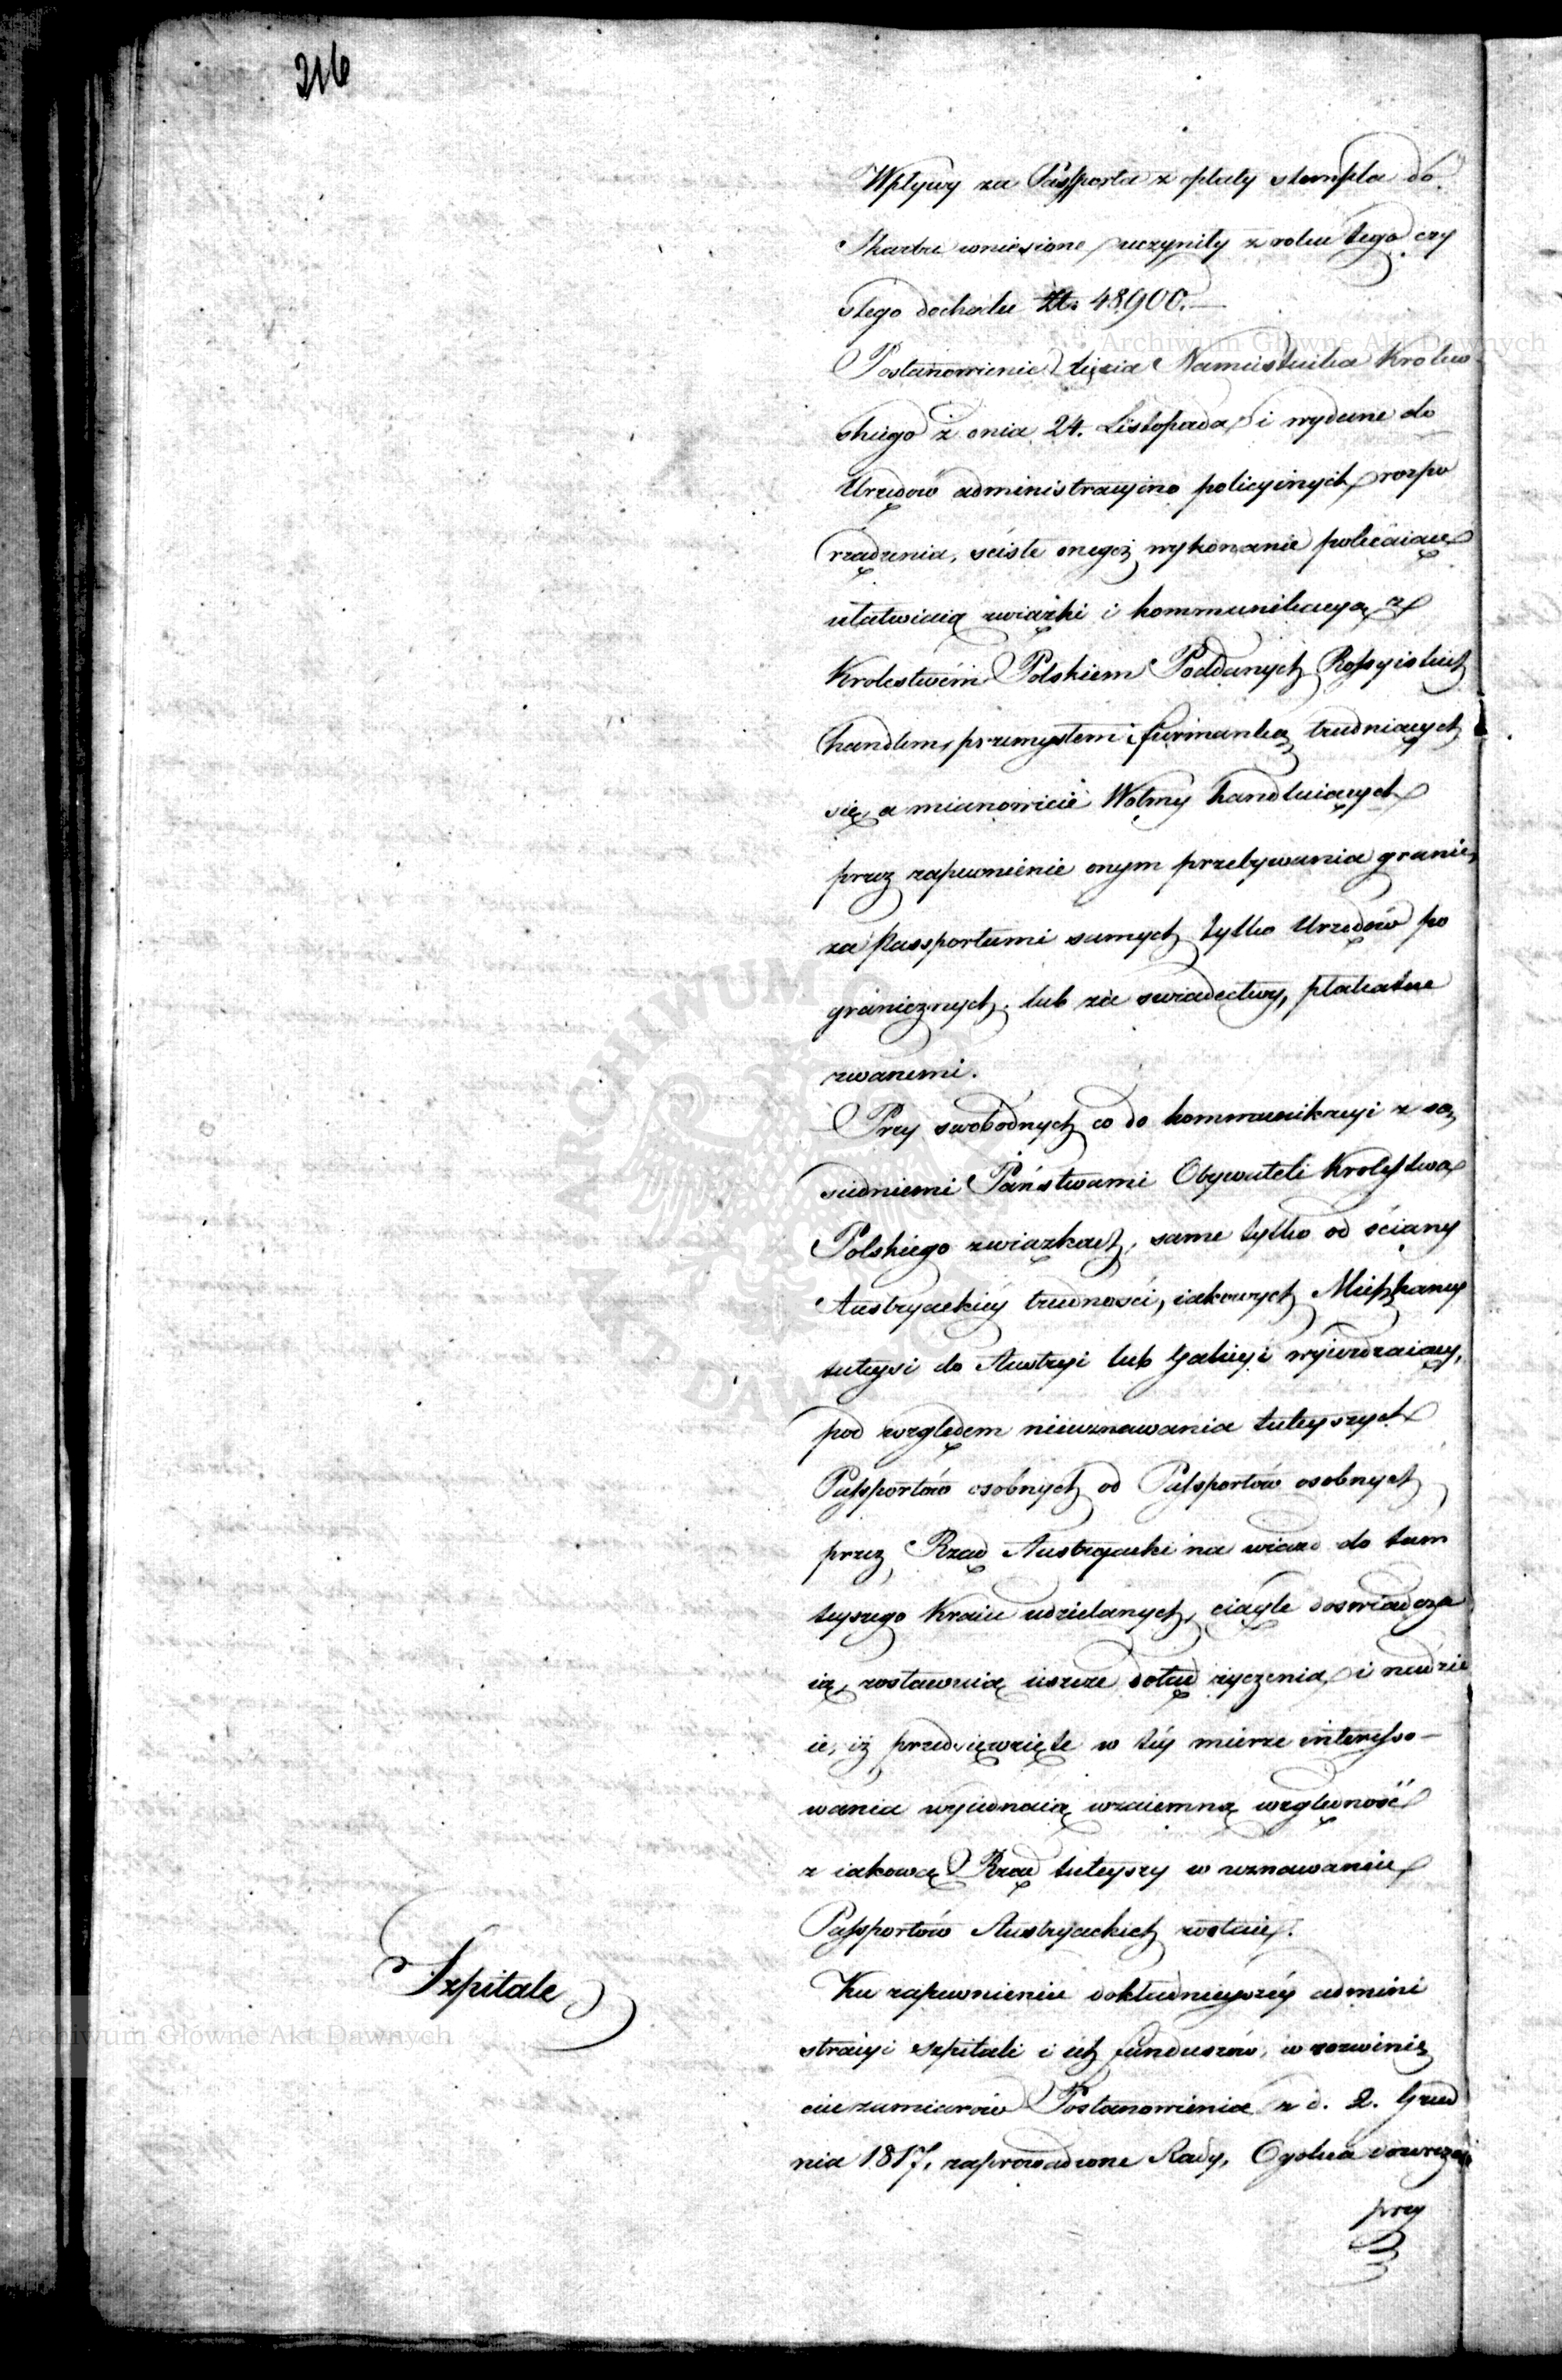 216
Wpływy za Passporta z opłaty stempla do
Skarbu wniesione, uczyniły z roku tego czy
stego dochodu Zł. 48,900.—
Postanowienie Xięcia Namiestnika Krolew
skiego z dnia 24. Listopada, i wydane do
Urzędów administracyino policyinych rozpo
rządzenia, ściśle onegoż wykonanie polecaiące
ułatwiaią związki i kommunikacyą z
Krolestwém Polskiem Poddanych Rossyiskich
handlem, przemysłem i furmanką trudniących
się, a mianowicie Wołmy handluiących
przez zapewnienie onym przebywania granic,
za Passportami samych tylko Urzędów po
granicznych, lub za swiadectwy, plakatne
zwanemi.
Przy swobodnych co do kommunikacyi z są
siedniemi Państwami Obywateli Krolestwa
Polskiego związkach, same tylko od ściany
Austryackiéy trudności, iakowych Mieszkańcy
tuteysi do Austryi lub Galicyi wyieżdzaiący,
pod względem nieuznawania tuteyszych
Passportów osobnych od Passportów osobnych
przez Rząd Austryacki na wiazd do tam
teyszego Kraiu udzielanych, ciągle doswiadcza
ią, zostawuią ieszcze dotąd życzenia, i nadzie
ie, iż przedsięwzięte w téy mierze interesso-
wania wyiednaią wzaiemną względność
z iakową Rząd tuteyszy w uznawaniu
Passportów Austryackich zostaie.
Szpitale
Ku zapewnieniu dokładnieyszéy admini
stracyi szpitali i ich funduszów, w rozwinię
ciu zamiarów Postanowienia z d. 2. Grud
nia 1817, zaprowadzone Rady, Ogolna dozorcza
przy
Archiwum Główne Akt Dawnych
Archiwum Główne Akt Dawnych
ARCHIWUM GŁÓWNE AKT DAWNYCH